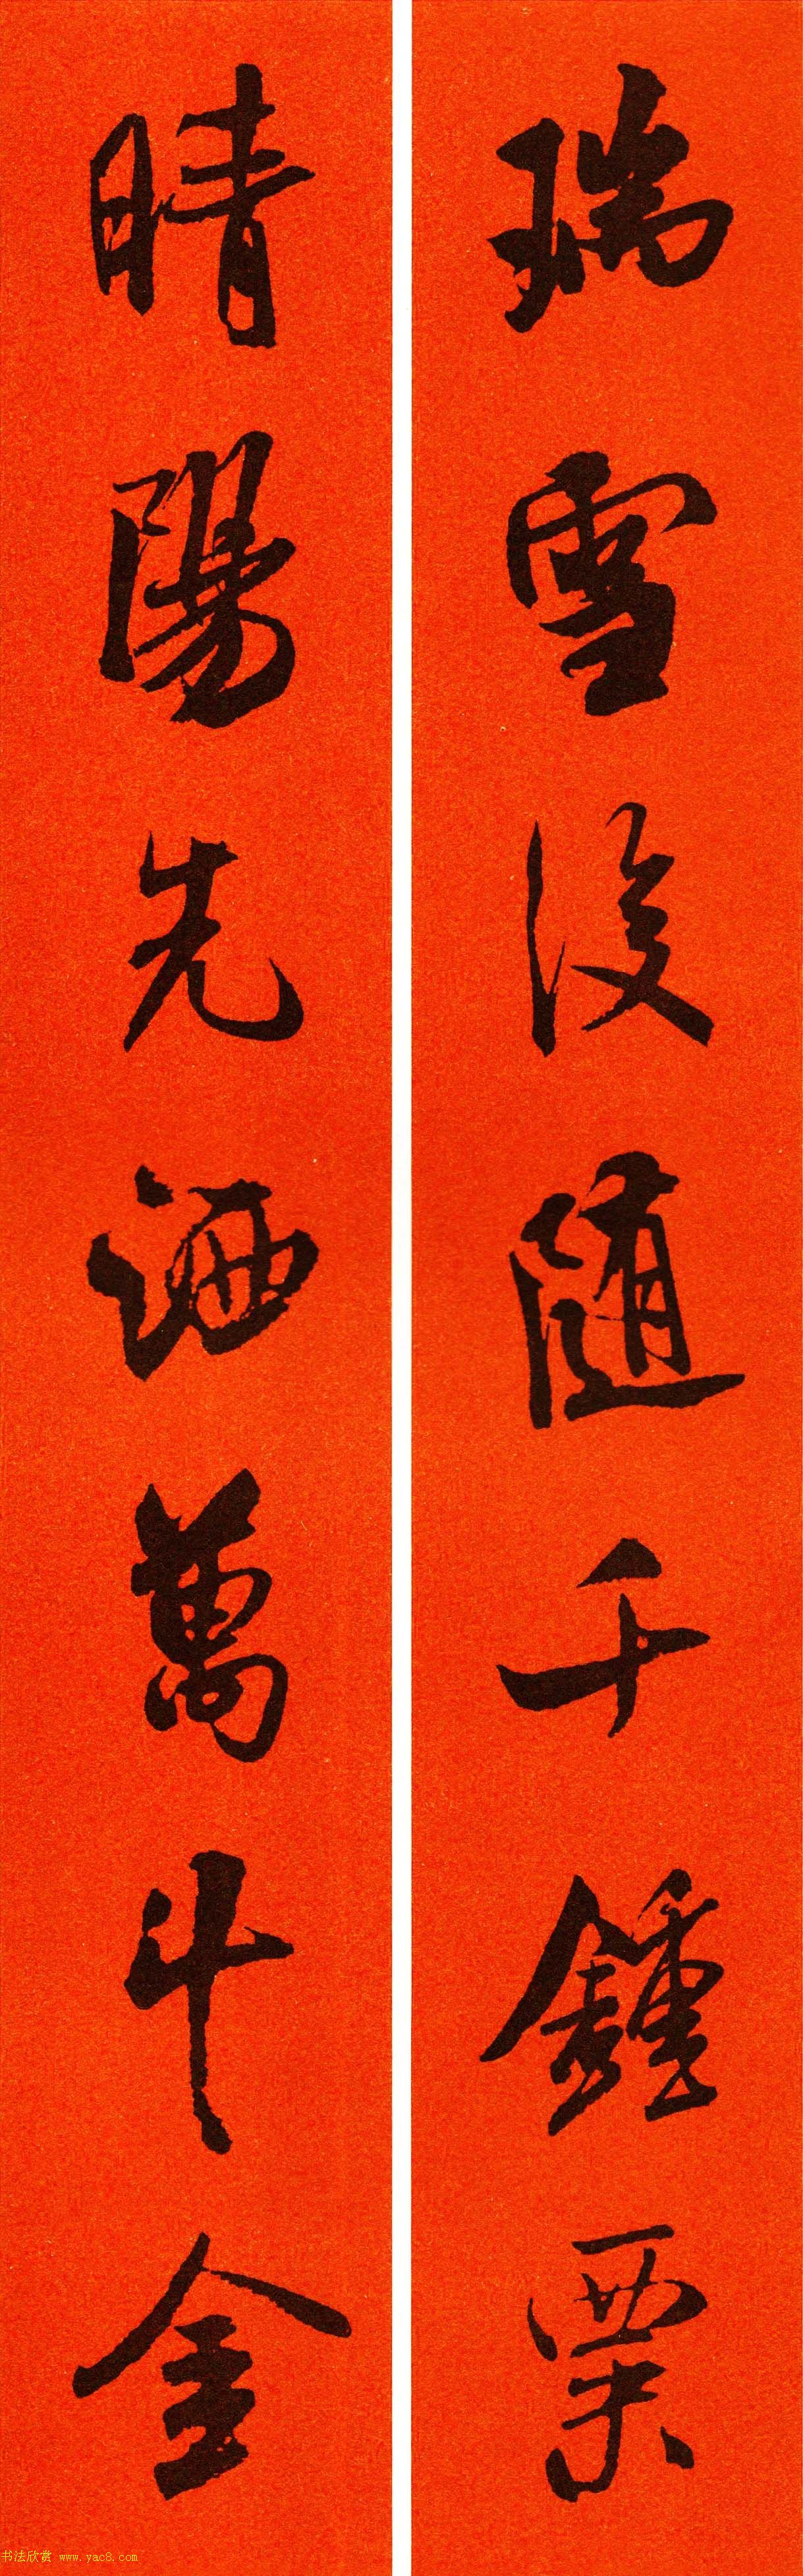 瑞雪後随千鍾粟
晴陽先洒萬斗金
书法欣赏 www.yac8.com